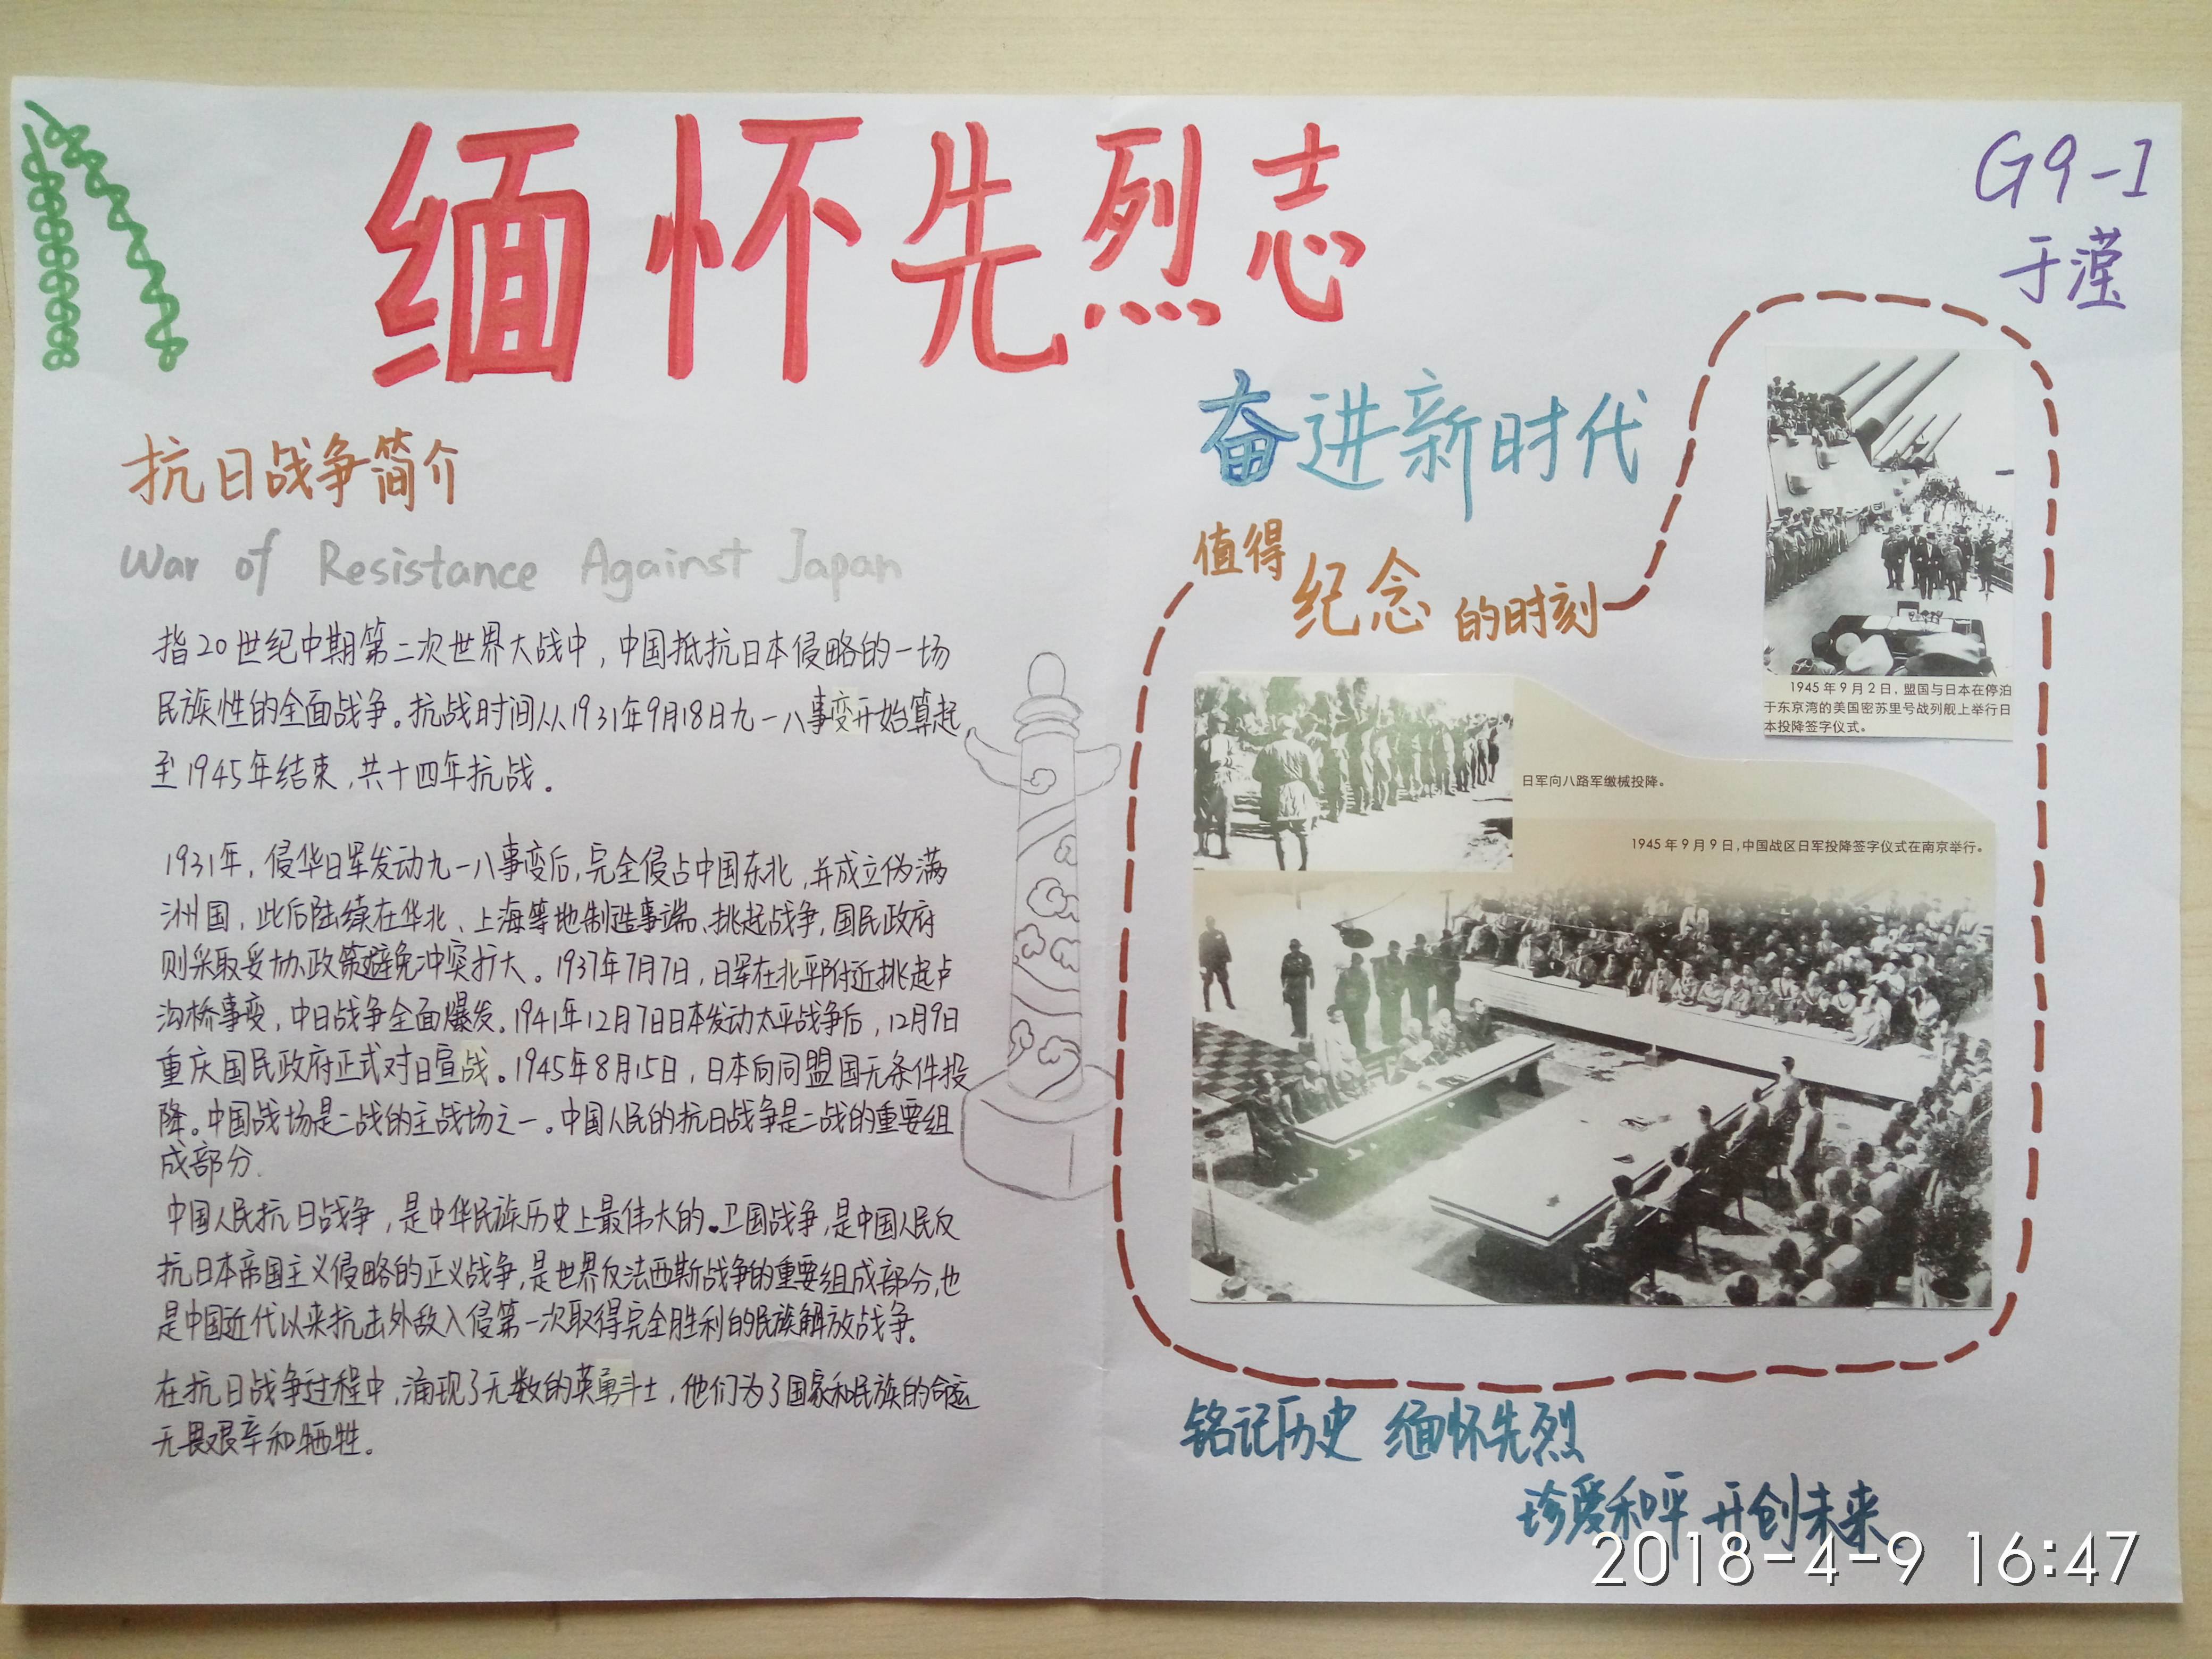 缅怀先烈志
G9-1
于滢
奋进新时代
抗日战争简介
War of Resistance Against Japan
指20世纪中期第二次世界大战中，中国抵抗日本侵略的一场
民族性的全面战争。抗战时间从1931年9月18日九一八事变开始算起
至1945年结束，共十四年抗战。
1931年，侵华日军发动九一八事变后，完全侵占中国东北，并成立伪满
洲国，此后陆续在华北、上海等地制造事端、挑起战争，国民政府
则采取妥协政策避免冲突扩大。1937年7月7日，日军在北平附近挑起卢
沟桥事变，中日战争全面爆发。1941年12月7日日本发动太平战争后，12月9日
重庆国民政府正式对日宣战。1945年8月15日，日本向同盟国无条件投
降。中国战场是二战的主战场之一。中国人民的抗日战争是二战的重要组
成部分.
中国人民抗日战争，是中华民族历史上最伟大的.卫国战争，是中国人民反
抗日本帝国主义侵略的正义战争，是世界反法西斯战争的重要组成部分，也
是中国近代以来抗击外敌入侵第一次取得完全胜利的民族解放战争。
在抗日战争过程中，涌现了无数的英勇斗士，他们为了国家和民族的命运
无畏艰辛和牺牲。
值得
纪念
的时刻
1945年9月2日，盟国与日本在停泊
于东京湾的美国密苏里号战列舰上举行日
本投降签字仪式。
日军向八路军缴械投降。
1945年9月9日，中国战区日军投降签字仪式在南京举行。
铭记历史 缅怀先烈
珍爱和平 开创未来
2018-4-9 16:47